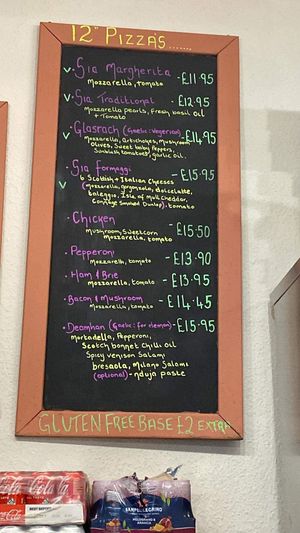 12" Pizza's......
v · Sia Margherita - £11.95
Mozzarella, tomato
v · Sia Traditional - £12.95
Mozzarella pearls, Fresh basil oil
+ Tomato
v · Glasrach (Gaelic: Vegetarian) - £14.95
Mozzarella, Artichokes, Mushroom
Olives, Sweet baby Peppers,
Sunblush tomatoes, garlic oil.
· Sia Formaggi - £15.95
6 Scottish + Italian Cheeses
v (Mozzarella, gorgonzola, dolcelatte,
taleggio, Isle of Mull Cheddar,
Smoked Dunlop) + tomato
· Chicken - £15.50
Mushroom, Sweetcorn
Mozzarella, tomato
· Pepperoni - £13.90
Mozzarella, tomato
· Ham & Brie - £13.95
Mozzarella, tomato
· Bacon & Mushroom - £14.45
Mozzarella, tomato
· Deamhan (Gaelic: for demon) - £15.95
Mortadella, Pepperoni,
Scotch bonnet Chilli oil
Spicy venison Salami
bresaola, Milano Salami
(optional) - nduja paste
GLUTEN FREE BASE £2 EXTRA
Coca-Cola
SANPELLEGRINO
MELOGRANO & ARANCIA